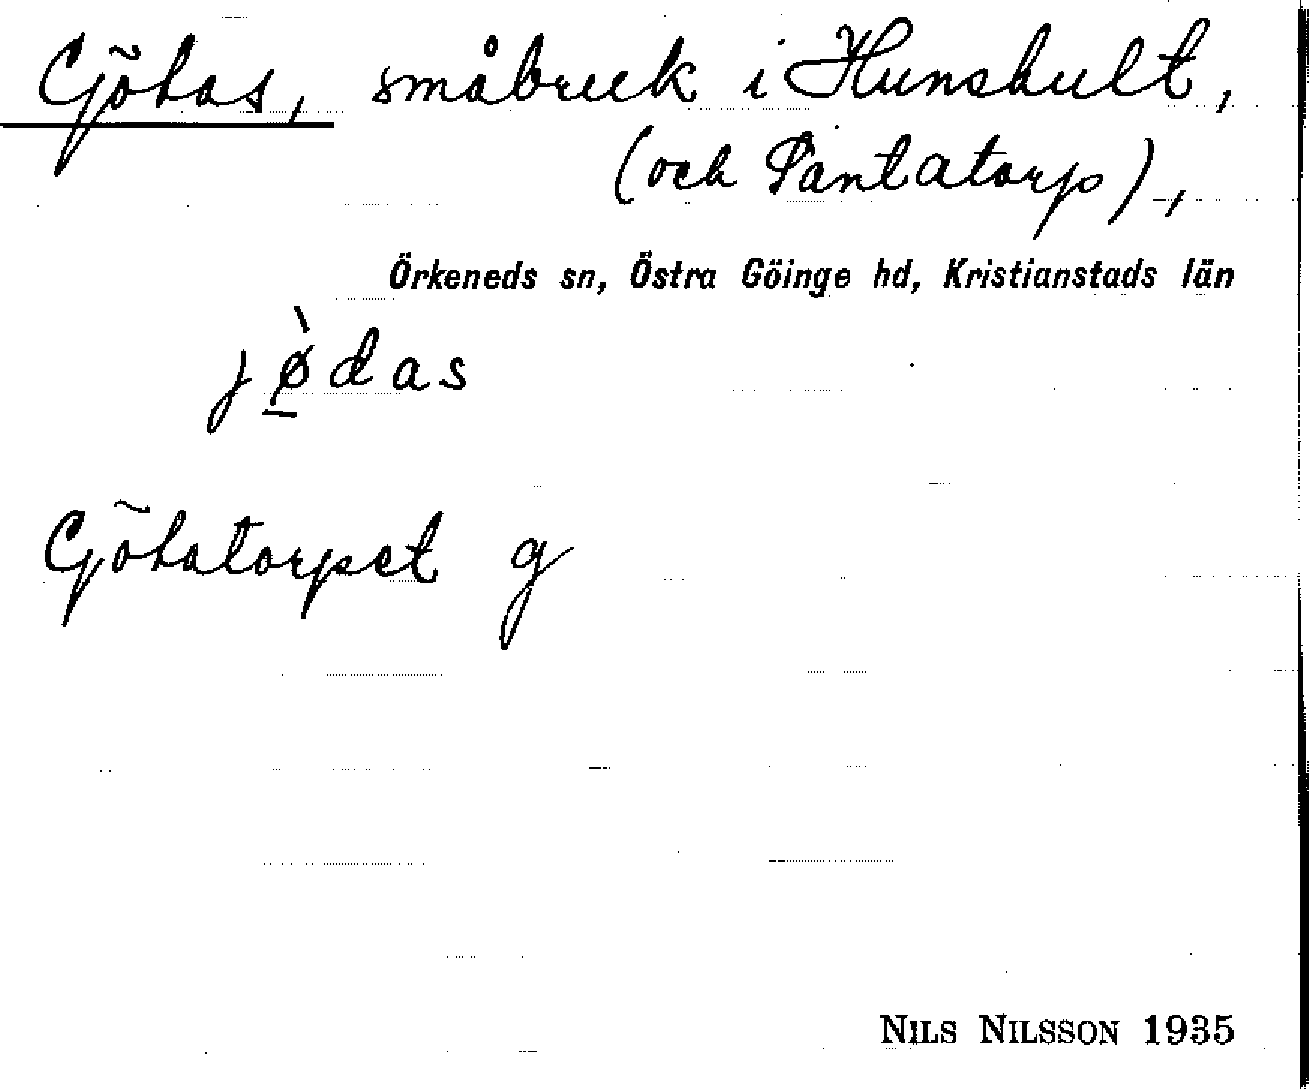 Götas, småbruk i Hunshult,
(och Pantatorp),
Örkeneds sn, Östra Göinge hd, Kristianstads län
jø̀das
Götatorpet g
NILS NILSSON 1935